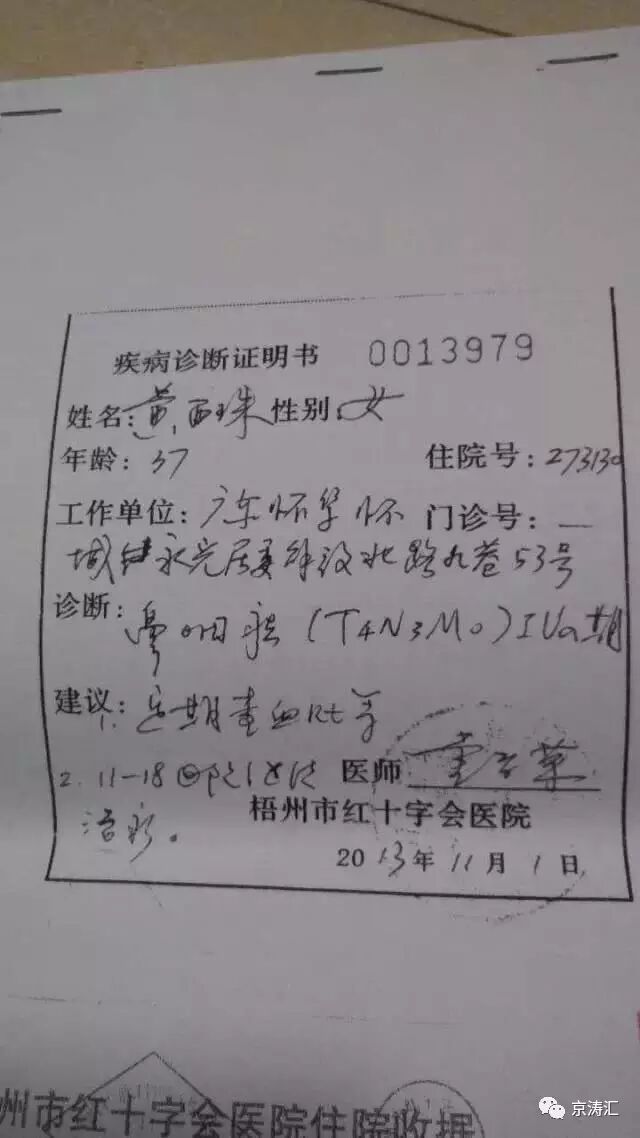 疾病诊断证明书 0013979
姓名:黄西珠 性别:女
年龄:37 住院号:273130
工作单位:广东怀集怀 门诊号:
城镇永光居委解放北路九巷53号
诊断:鼻咽癌(T4N3M0)IVa期
建议:1.定期查血Rt等
2.11-18回院 医师
治疗。 梧州市红十字会医院
2013年11月1日
州市红十字会医院住院收据
京涛汇